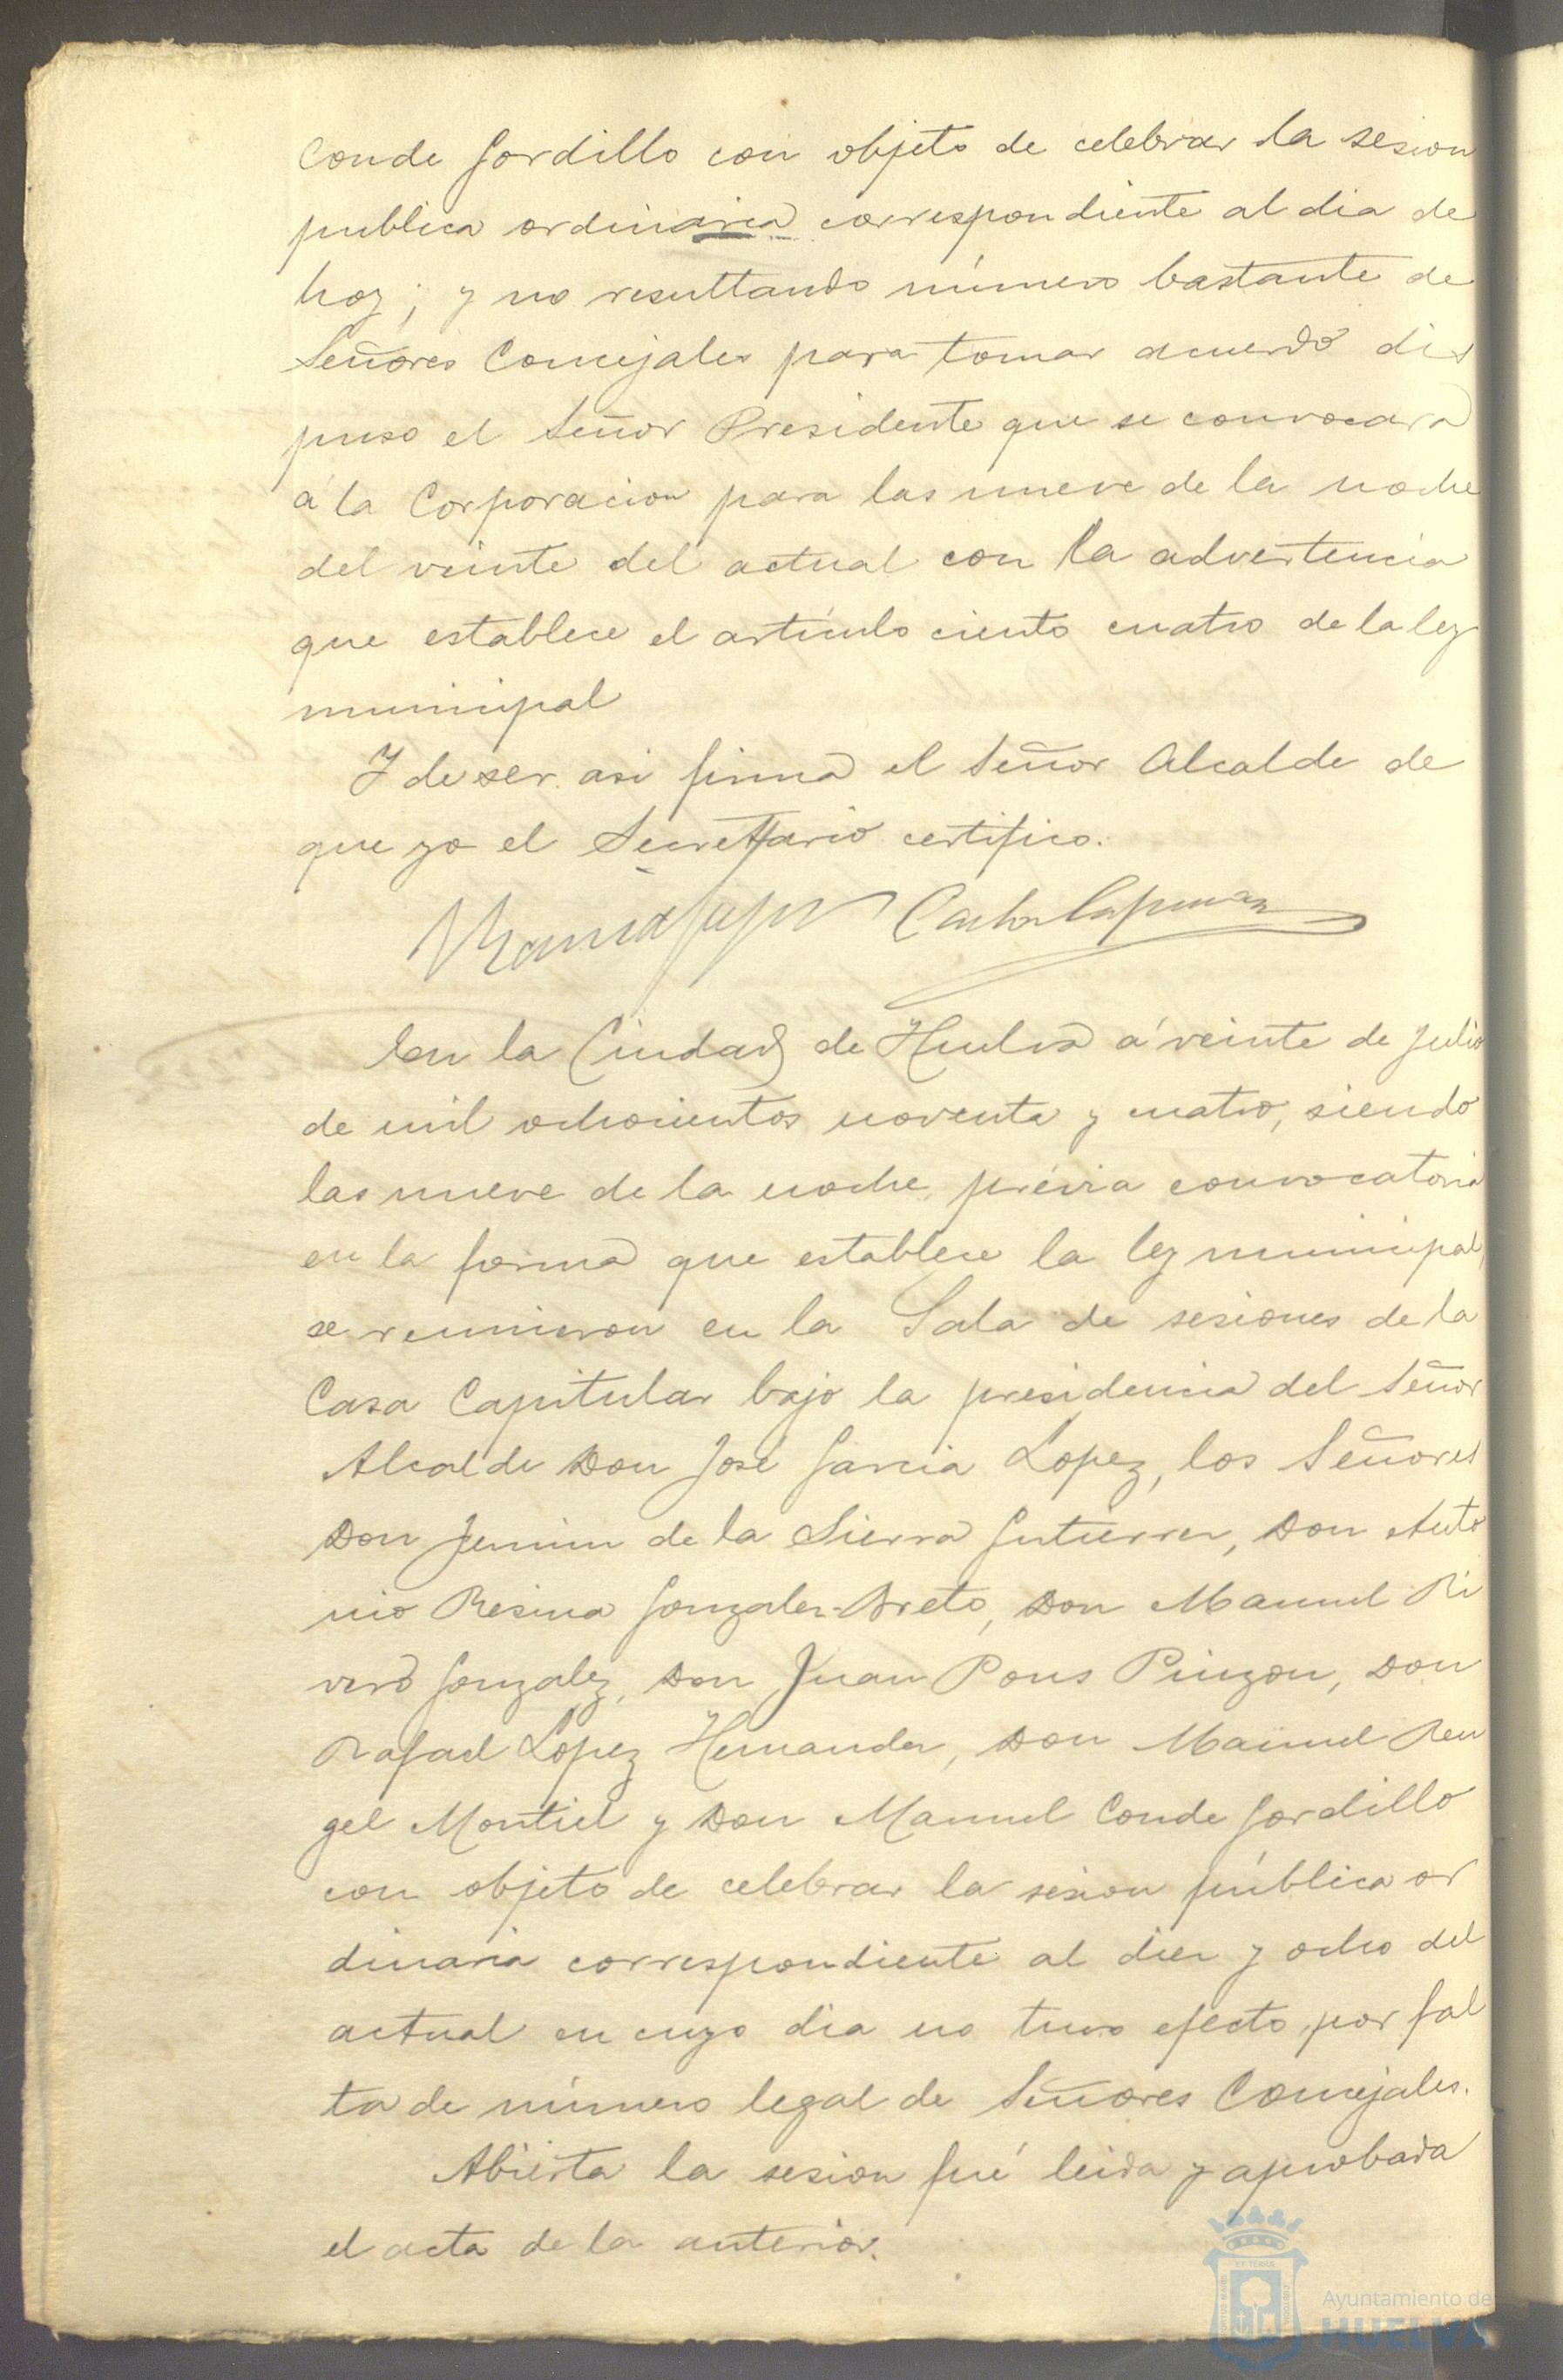 Conde Gordillo con objeto de celebrar la sesion
publica ordinaria correspondiente al dia de
hoy; y no resultando número bastante de
Señores Concejales para tomar acuerdo dis
puso el Señor Presidente que se convocara
á la Corporacion para las nueve de la noche
del veinte del actual con la advertencia
que establece el artículo ciento cuatro de la ley
municipal
Y de ser asi firma el Señor Alcalde de
que yo el Secretario certifico.
En la Ciudad de Huelva á veinte de Julio
de mil ochocientos noventa y cuatro, siendo
las nueve de la noche, prévia convocatoria
en la forma que establece la ley municipal,
se reunieron en la Sala de sesiones de la
Casa Capitular bajo la presidencia del Señor
Alcalde Don José Garcia Lopez, los Señores
Don de la Sierra Gutierrez, Don Anto
nio Resina Gonzalez-Breto, Don Manuel Ri
vero Gonzalez, Don Juan Pons Pinzon, Don
Rafael Lopez Hernandez, Don Manuel Ren
gel Montiel y Don Manuel Conde Gordillo
con objeto de celebrar la sesion pública or
dinaria correspondiente al diez y ocho del
actual en cuyo dia no tuvo efecto por fal
ta de número legal de Señores Concejales.
Abierta la sesion fué leida y aprobada
el acta de la anterior.
Ayuntamiento de
HUELVA